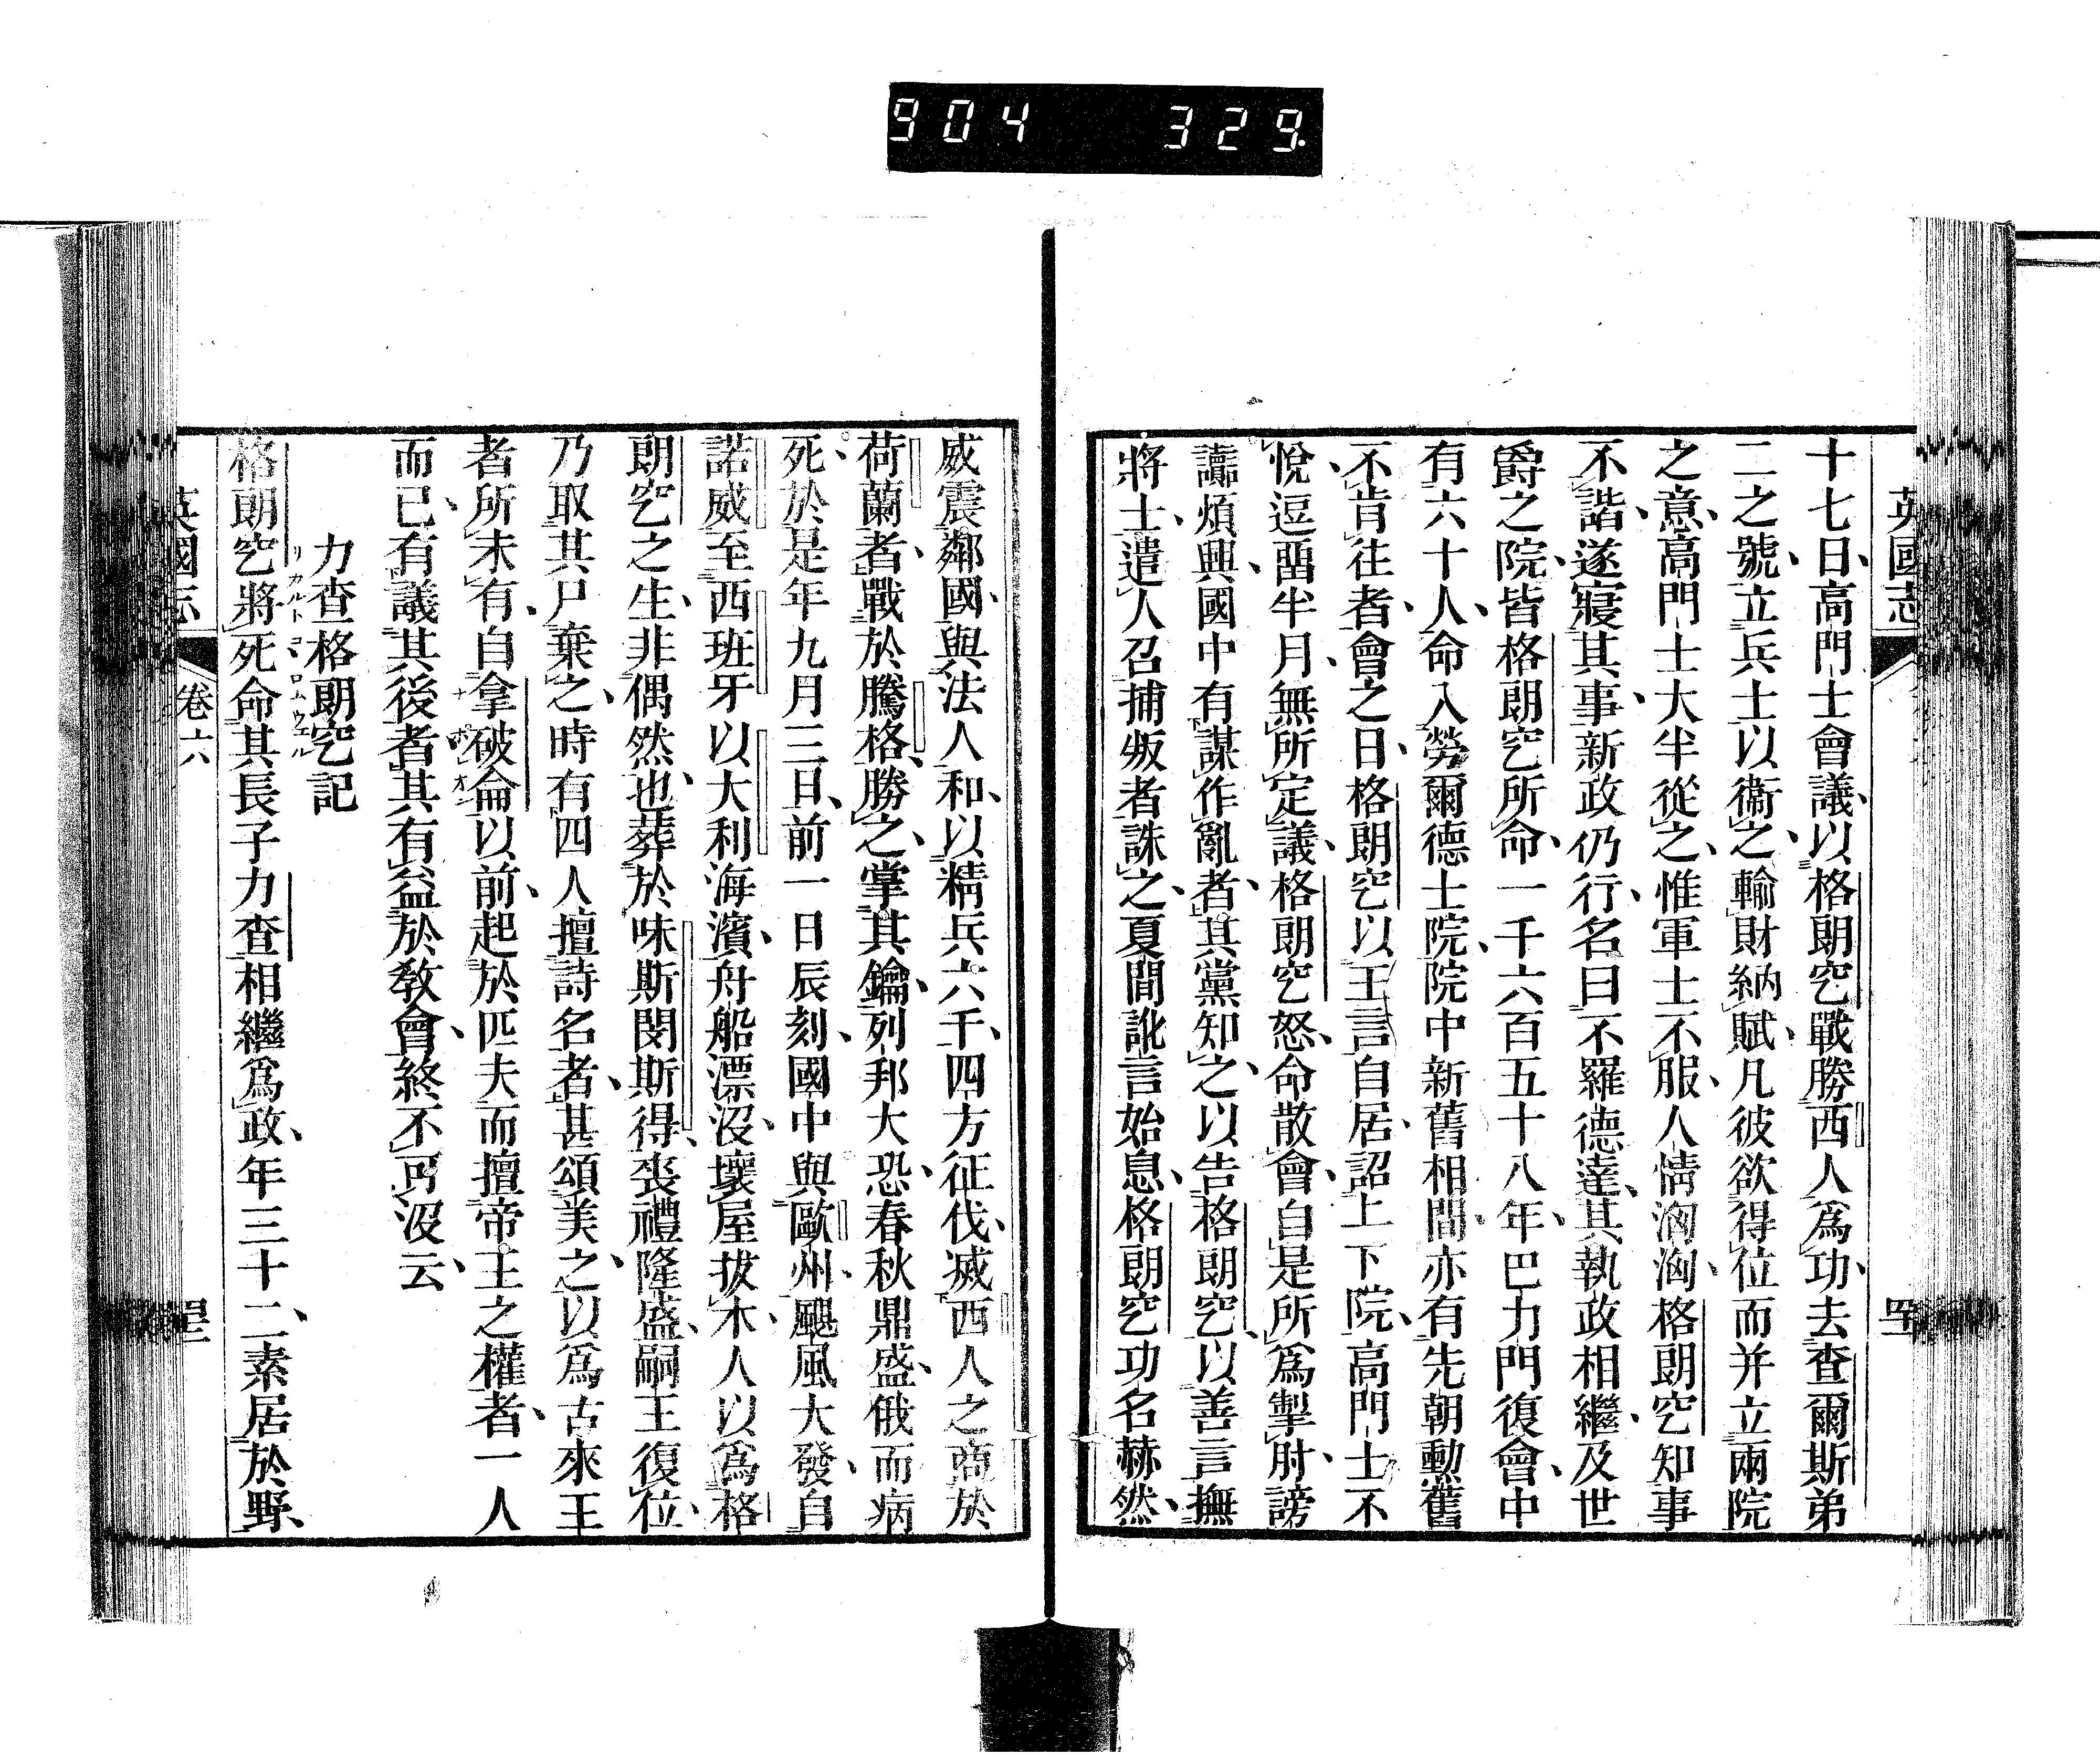 904 329.
英國志
十七日、高門士會議、以格朗穵戰勝西人爲功、去查爾斯弟
二之號、立兵士以衞之、輸財納賦、凡彼欲得位而并立兩院
之意、高門士大半從之、惟軍士不服、人情洶洶、格朗穵知事
不諧、遂寢其事、新政仍行、名曰不羅德達、其執政相繼、及世
爵之院、皆格朗穵所命、一千六百五十八年、巴力門復會、中
有六十人、命入勞爾德士院、院中新舊相間、亦有先朝勳舊
不肯往者、會之日、格朗穵以王言自居、詔上下院、高門士不
悅、逗畱半月、無所定議、格朗穵怒、命散會、自是所爲掣肘、謗
讟煩興、國中有謀作亂者、其黨知之、以告格朗穵、以善言撫
將士、遣人召捕叛者誅之、夏間訛言始息、格朗穵功名赫然、
威震鄰國、與法人和、以精兵六千、四方征伐、滅西人之商於
荷蘭者、戰於騰格、勝之、掌其鑰、列邦大恐、春秋鼎盛、俄而病
死、於是年九月三日、前一日辰刻、國中與歐州、颶風大發、自
諾威至西班牙以大利海濱、舟船漂沒、壞屋拔木、人以爲格
朗穵之生、非偶然也、葬於味斯閔斯得、喪禮隆盛、嗣王復位、
乃取其尸棄之、時有四人擅詩名者、甚頌美之、以爲古來王
者所未有、自拿破侖以前、起於匹夫而擅帝王之權者、一人
而已、有議其後者、其有益於教會、終不可沒云、
力查格朗穵記
格朗穵將死、命其長子力查相繼爲政、年三十二、素居於野、
英國志
卷六